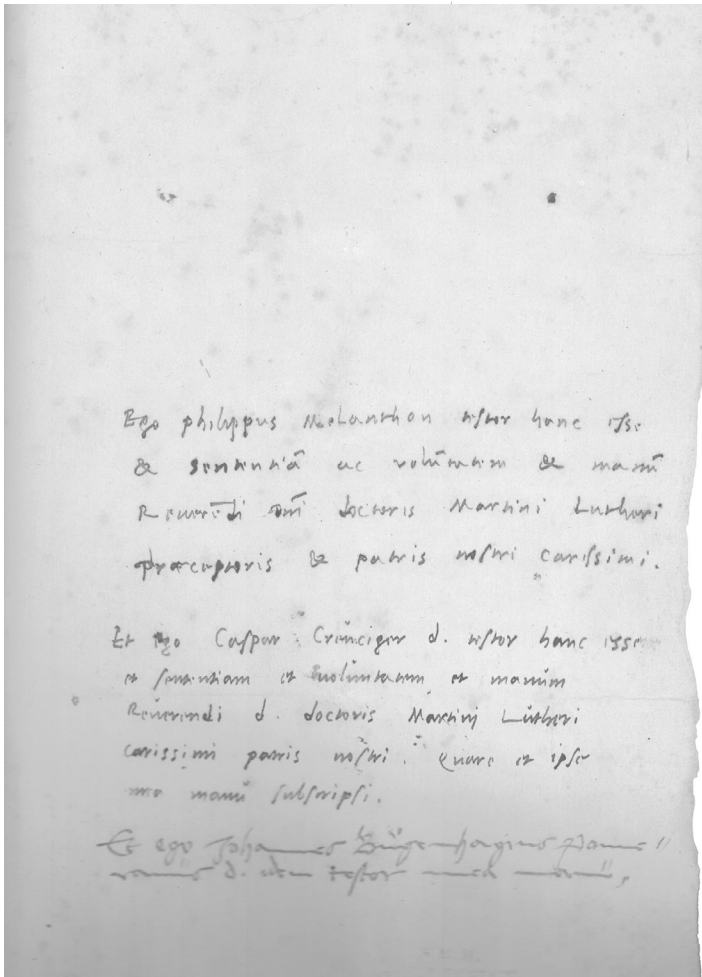 Ego philippus Melanthon testor hanc esse
& sententiā ac volūtatem & manū
Reverēdi dnī doctoris Martini Lutheri
præceptoris & patris nostri carissimi.
Et ego Caspar Creuciger d. testor hanc esse
et sententiam et voluntatem et manum
Reverendi d. doctoris Martinj Lutheri
carissimi patris nostri. Quare et ipse
mea manu subscripsi.
Et ego Johannes Bugenhagius Pome"
ranus d. idem testor mea manu,